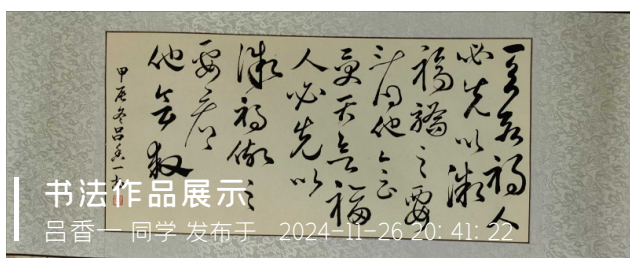 天欲禍人
必先以微
福驕之要
看他会
受天欲福
人必先以
微禍儆之
要看
他会救
甲辰冬吕香一书
书法作品展示
吕香一 同学 发布于 2024-11-26 20:41:22